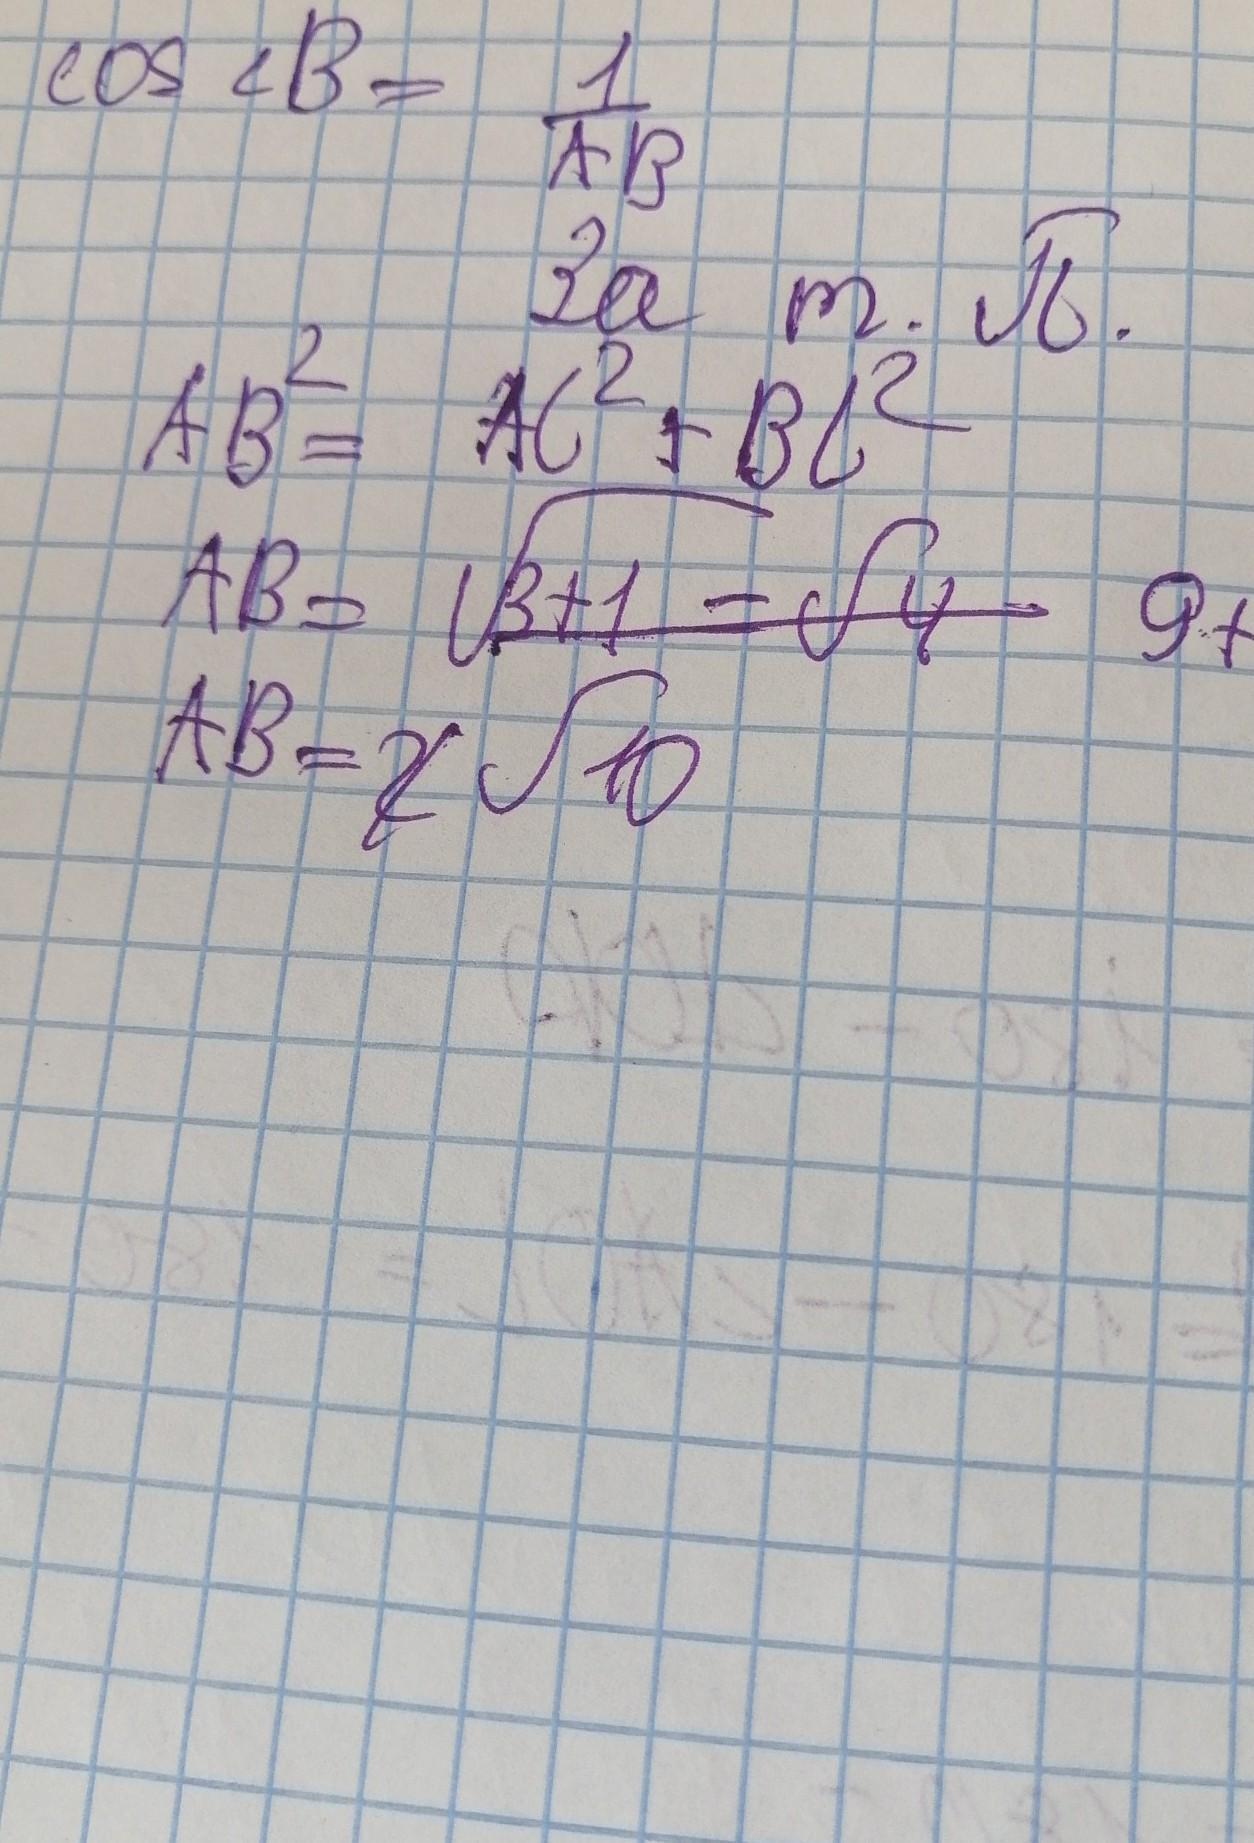 cos ∠B = 1/AB
За т. П.
AB² = AC² + BC²
AB = √3+1 = √4 9+
AB = √10